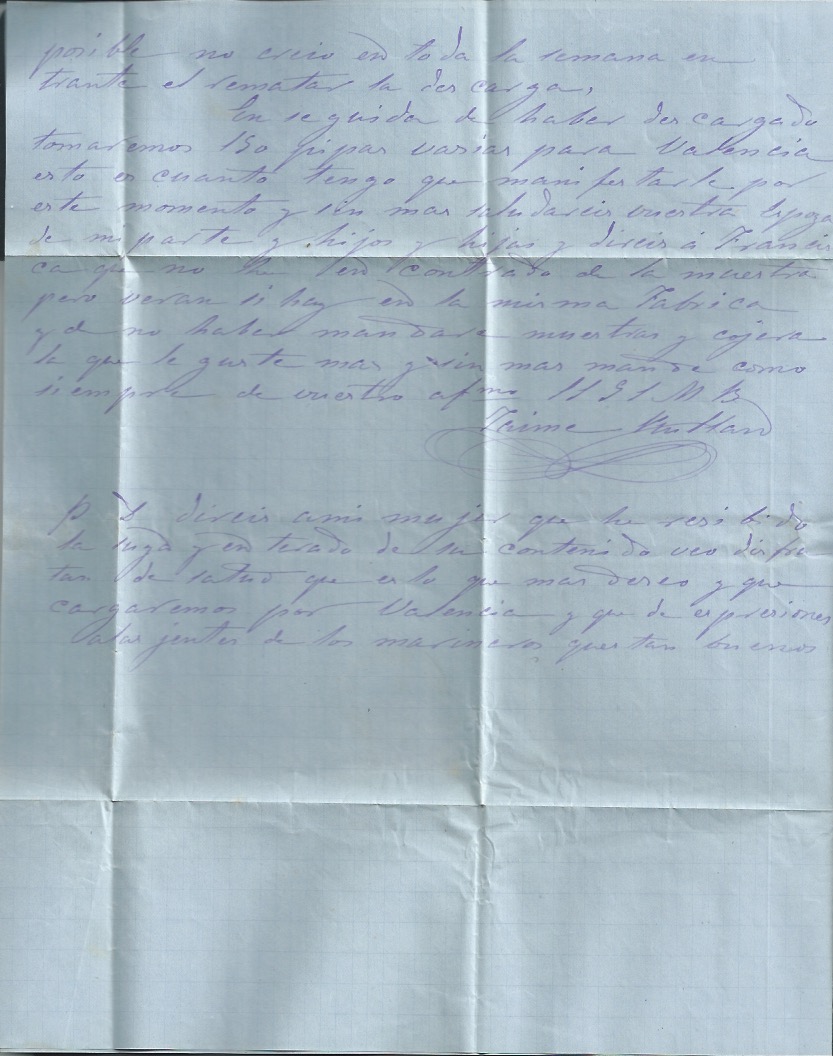 posible no creio en toda la semana en
trante el rematar la des carga,
En seguida de haber des cargado
tomaremos 150 pipas vasias para Valencia
esto es cuanto tengo que manifestarle por
este momento y sin mas saludareis vuestra Espoza
de mi parte y hijos y hijas y direis á Francis
ca que no he en contrado de la muestra
pero veran si hay en la misma Fabrica
y de no haber mandara muestras y cojera
la que le guste mas y sin mas mande como
siempre de vuestro afmo
Jaime
P. D. direis ami mujer que he resibido
la suya y en terado de su contenido veo disfru
tan de salud que es lo que mas deseo y que
cargaremos por Valencia y que de espresiones
alas jentes de los marineros questan buenos